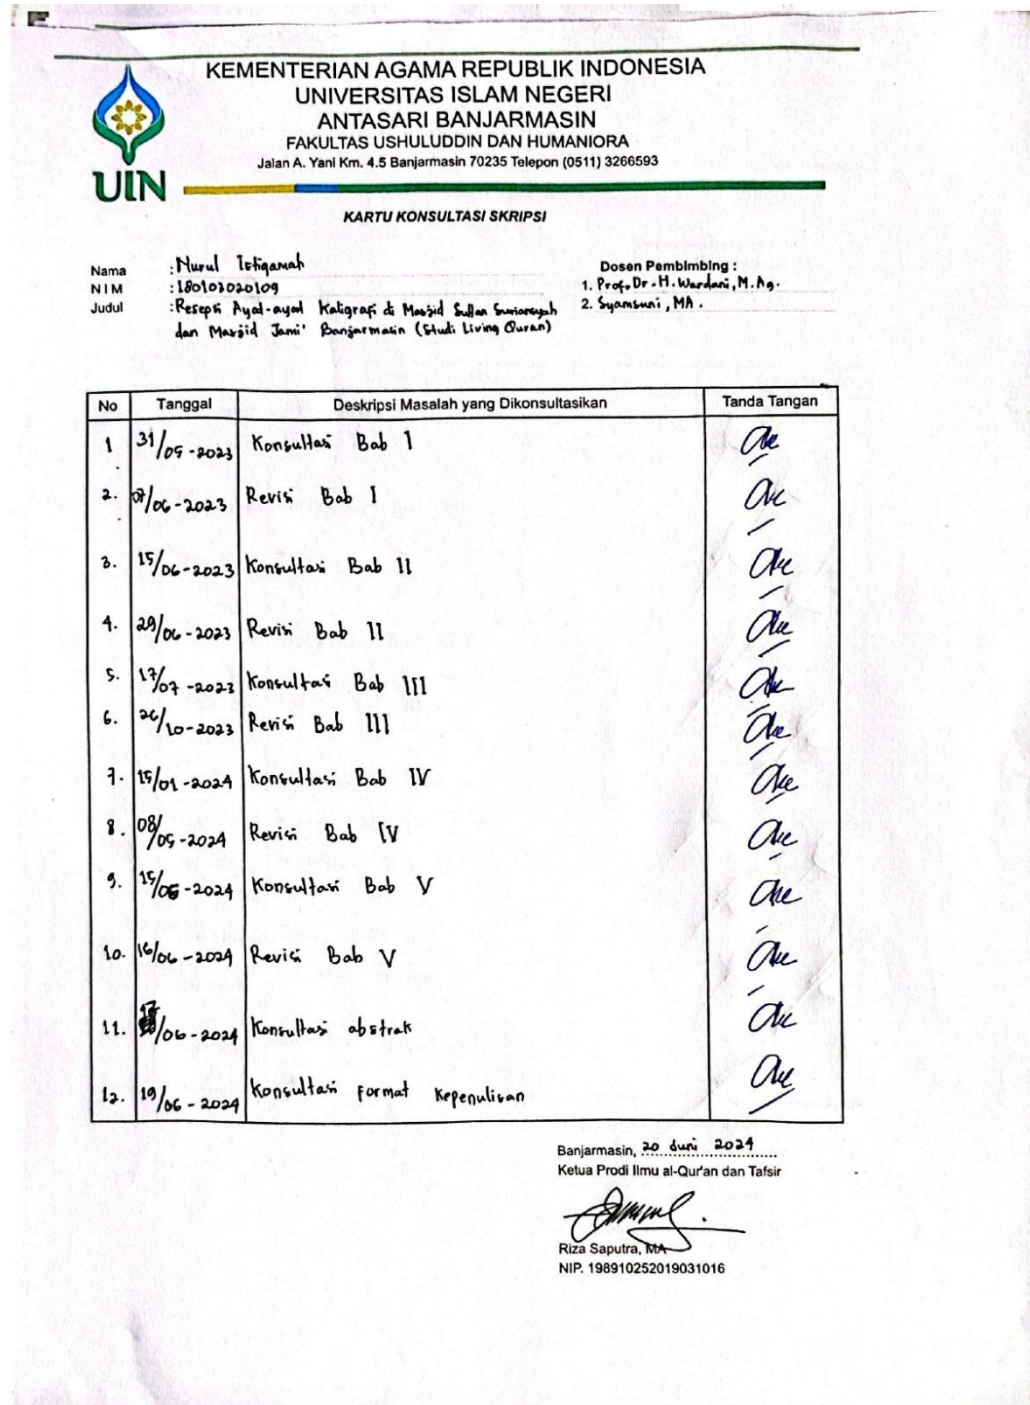 KEMENTERIAN AGAMA REPUBLIK INDONESIA
UNIVERSITAS ISLAM NEGERI
ANTASARI BANJARMASIN
FAKULTAS USHULUDDIN DAN HUMANIORA
Jalan A. Yani Km. 4.5 Banjarmasin 70235 Telepon (0511) 3266593
UIN
KARTU KONSULTASI SKRIPSI
Nama : Nurul Istiqamah
NIM : 180103020109
Judul : Resepsi Ayat-ayat Kaligrafi di Masjid Sultan Suriansyah
dan Masjid Jami' Banjarmasin (Studi Living Quran)
Dosen Pembimbing :
1. Prof. Dr. H. Wardani, M.Ag.
2. Syamsuni, MA.
No Tanggal Deskripsi Masalah yang Dikonsultasikan Tanda Tangan
1 31/05-2023 Konsultasi Bab I
2. 07/06-2023 Revisi Bab I
3. 15/06-2023 Konsultasi Bab II
4. 29/06-2023 Revisi Bab II
5. 17/07-2023 Konsultasi Bab III
6. 26/10-2023 Revisi Bab III
7. 15/01-2024 Konsultasi Bab IV
8. 08/05-2024 Revisi Bab IV
9. 15/06-2024 Konsultasi Bab V
10. 16/06-2024 Revisi Bab V
11. 17/06-2024 Konsultasi abstrak
12. 19/06-2024 Konsultasi Format Kepenulisan
Banjarmasin, 20 Juni 2024
Ketua Prodi Ilmu al-Qur'an dan Tafsir
Riza Saputra, MA
NIP. 198910252019031016